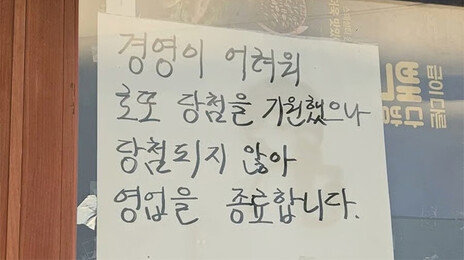 경영이 어려워
로또 당첨을 기원했으나
당첨되지 않아
영업을 종료합니다.